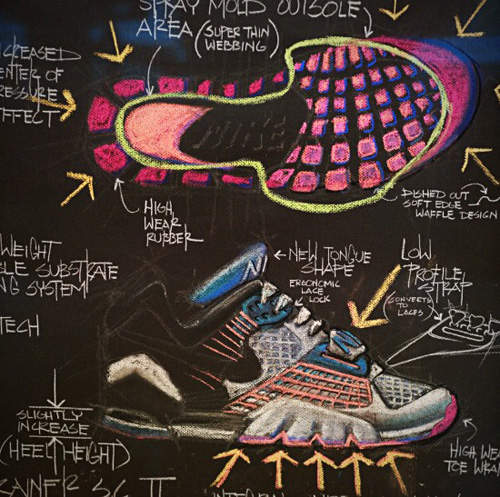 SPRAY MOLD OUTSOLE
AREA (SUPER THIN
WEBBING)
CENTER OF
PRESSURE
EFFECT
NIKE
HIGH
WEAR
RUBBER
DISHED OUT
SOFT EDGE
WAFFLE DESIGN
WEIGHT
SUBSTRATE
SYSTEM
TECH
NEW TONGUE
SHAPE
ERGONOMIC
LACE
LOCK
LOW
PROFILE
STRAP
(CONVERTS
TO
LACES)
SLIGHTLY
INCREASE
(HEEL HEIGHT)
HIGH
TOE WRAP
SC II